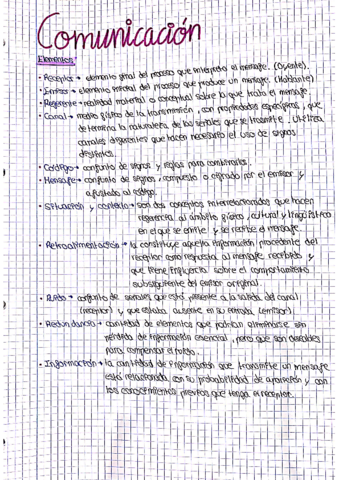 Comunicación
Elementos:
· Receptor → elemento final del proceso que interpreta el mensaje. (Oyente).
· Emisor → elemento inicial del proceso que produce un mensaje. (Hablante)
· Referente → realidad material o conceptual sobre la que trata el mensaje.
· Canal → medio físico de la transmisión, con propiedades específicas, que
determina la naturaleza de las señales que se transmite. Utiliza
canales diferentes que hacen necesario el uso de signos
distintos.
· Código → conjunto de signos y reglas para combinarlos.
· Mensaje → conjunto de signos, compuesto o cifrado por el emisor y
ajustado al código.
· Situación y contexto → son dos conceptos interrelacionados que hacen
referencia al ámbito físico, cultural y lingüístico
en el que se emite y se recibe el mensaje.
· Retroalimentación → la constituye aquella información procedente del
receptor como respuesta al mensaje recibido y
que tiene influencia sobre el comportamiento
subsiguiente del emisor original.
· Ruido → conjunto de señales que está presente a la salida del canal
(receptor) y que estaba ausente en su entrada (emisor).
· Redundancia → cantidad de elementos que podrían eliminarse sin
pérdida de información esencial, pero que son
para compensar el ruido.
· Información → la cantidad de información que transmite un mensaje
está relacionada con su probabilidad de aparición y con
los conocimientos previos que tenga el receptor.